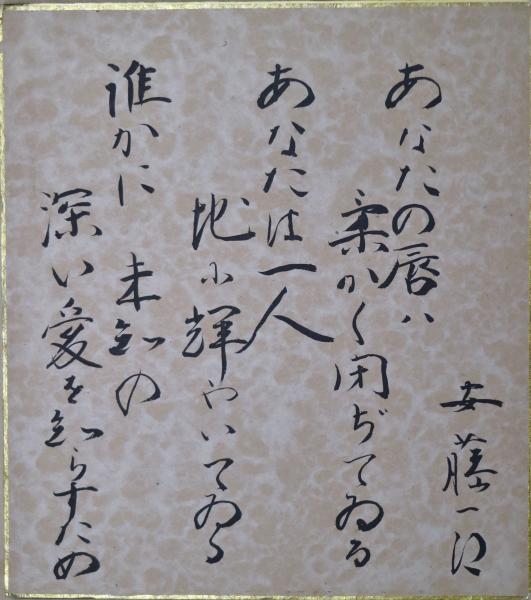 あなたの唇は
柔かく閉ぢてゐる
あなたは一人
地に輝やいてゐる
誰かに 未知の
深い愛を知らすため
安藤一郎